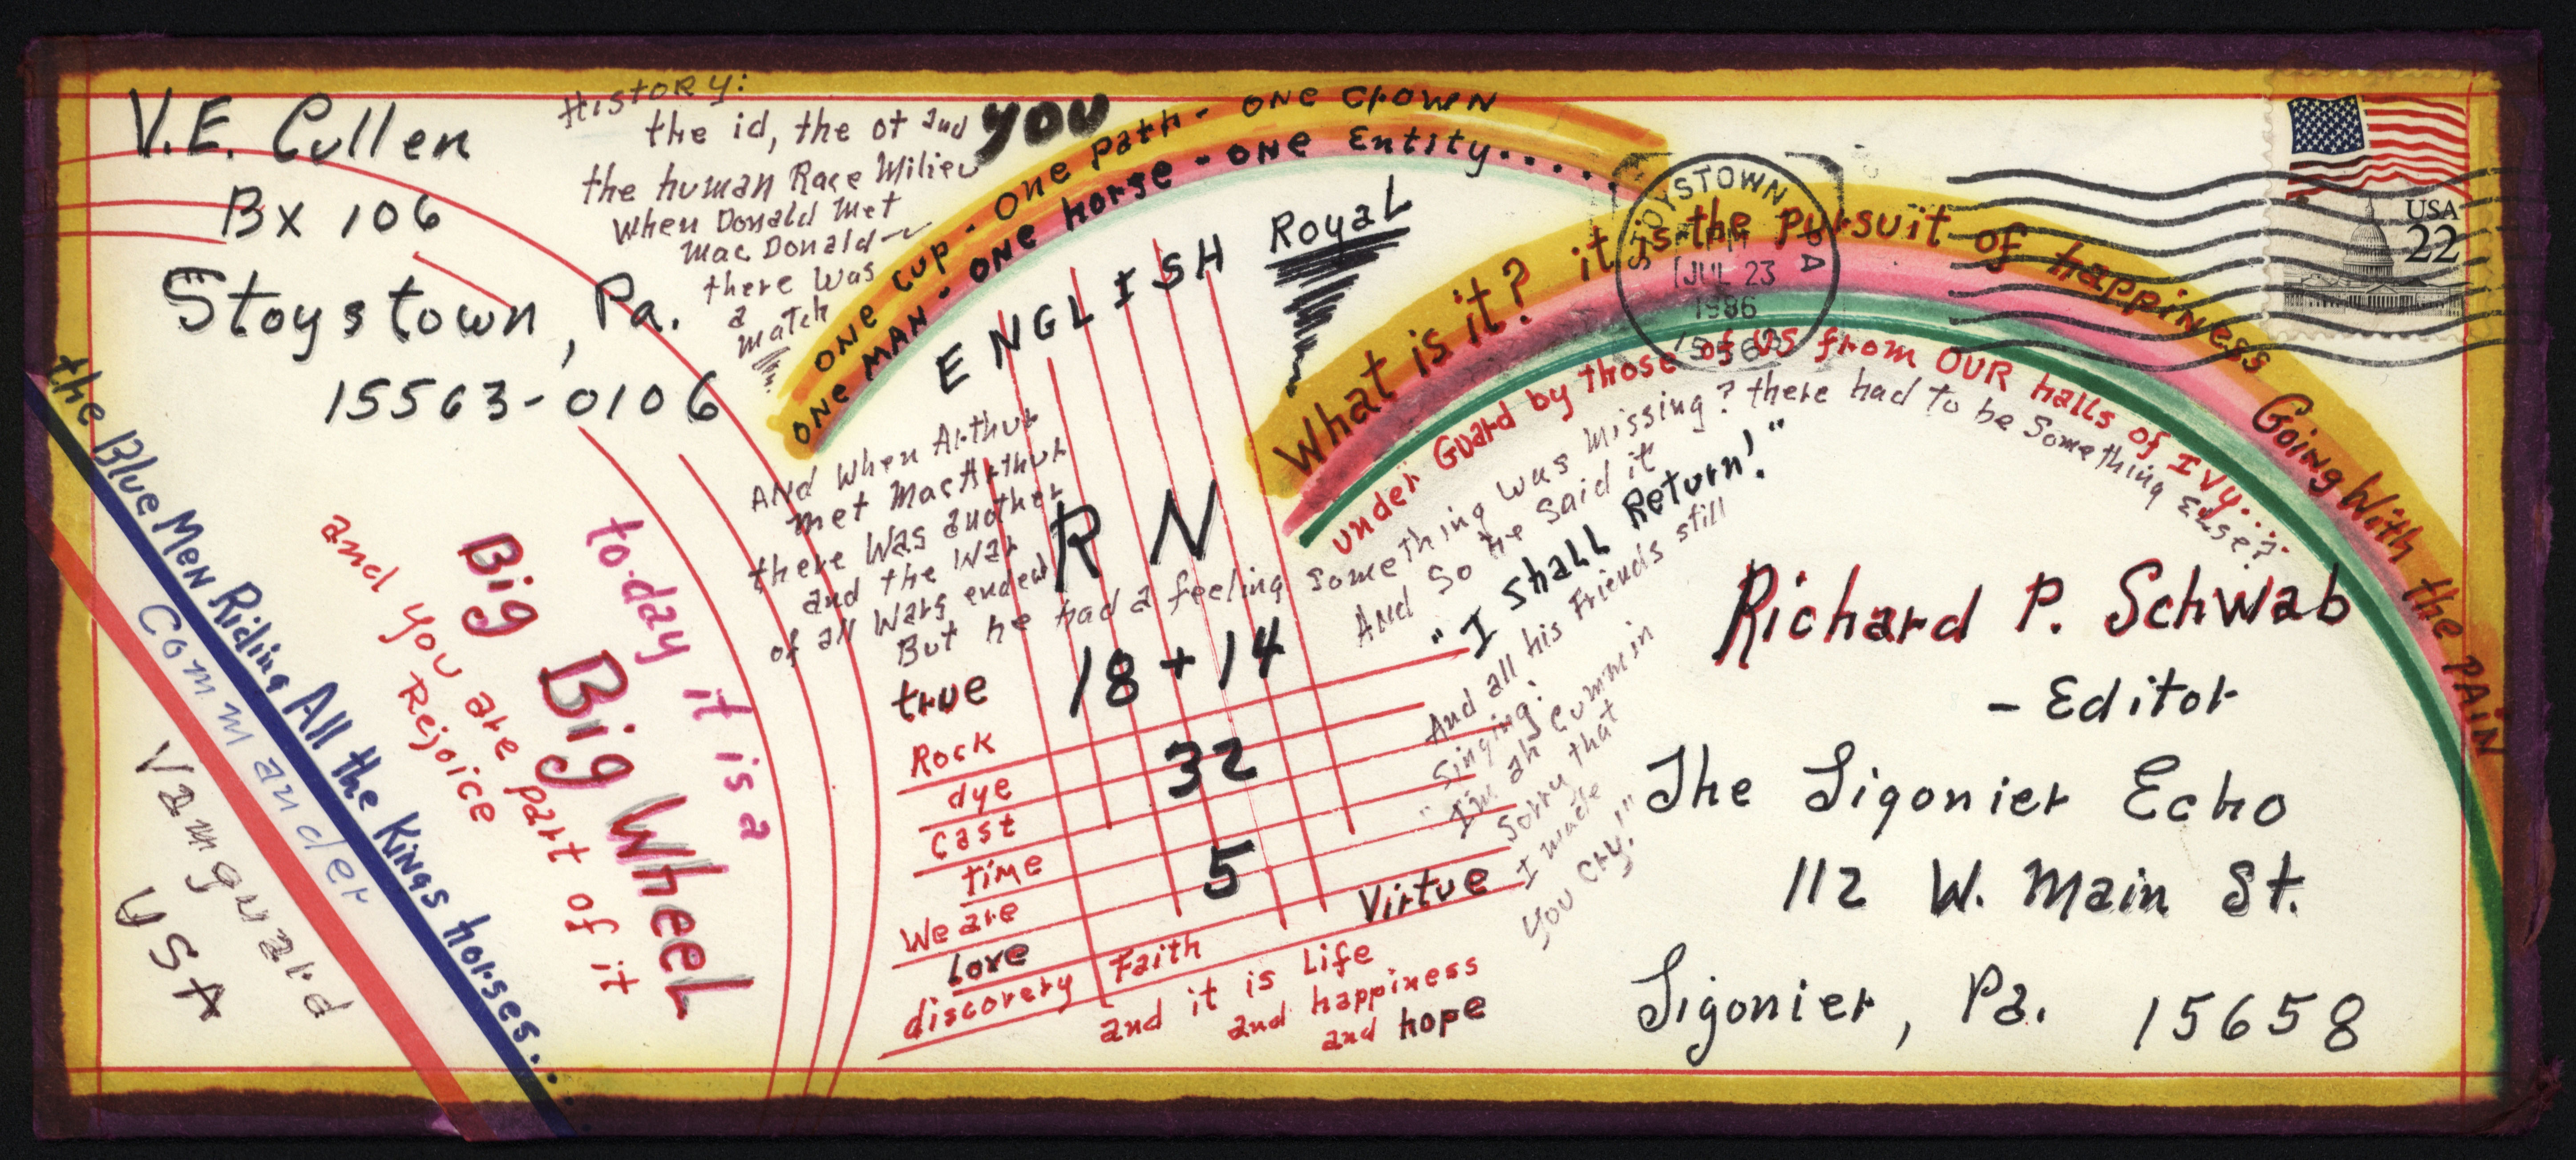 V.E. Cullen
Bx 106
Stoystown, Pa.
15563-0106
History:
the id, the ot and YOU
the human Race Milieu
When Donald Met
Mac Donald
there was
a
match
ONE Cup - One Path - ONE Crown
ONE MAN - ONE horse - ONE Entity.....
ENGLISH
Royal
What is it? it is the pursuit of happiness Going With the PAIN
under Guard by those of US from OUR halls of IVy...
STOYSTOWN
PA
JUL 23
1986
USA
22
AND When Arthur
met MacArthur
there Was another
and the War
of all Wars ended
But he had a feeling something was missing? there had to be Something Else?
And So he Said it
"I Shall Return!"
And all his Friends still
Singing:
"I'm ah Cummin
Sorry that
I made
you cry!"
RN
18 + 14
32
5
true
Rock
dye
cast
time
We are
Love
discovery Faith
Virtue
and it is Life
and happiness
and hope
to-day it is a
Big Big Wheel
and you are part of it
Rejoice
the Blue Men Riding All the Kings horses...
Commander
Vamguard
USA
Richard P. Schwab
- Editor
The Ligonier Echo
112 W. Main St.
Ligonier, Pa. 15658